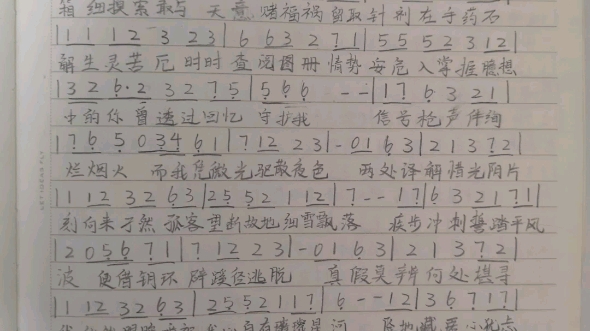 细搜索最与 天意 赌福祸 取针剂在手药石
|1 1 1 2 3 2 3|6 6 3 2 7 1|5 5 5 2 3 1 2|
解生灵苦厄 时时查阅图册情势安危入掌握臆想
|3 2 6·2 3 2 7 5|5 6 6 - -|1 7 6 3 2 1|
中的你曾透过回忆 守护我 信号枪声伴绚
1 7 6 5 0 3 4 6 1|7 1 2 2 3|-0 1 6 3|2 1 3 7 2|
烂烟火 而我凭微光驱散夜色 两处译解惜光阴片
|1 1 2 3 2 6 3|2 5 5 2 1 1 2|7 - - 1 7|6 3 2 1 7 1|
刻向来孑然孤客重新故地细雪飘落 疾步冲刺 踏平风
|2 0 5 6 7 1|7 1 2 2 3|-0 1 6 3|2 1 3 7 2|
波 便借钥环辟蹊径逃脱 真假莫辨何处 寻
|1 1 2 3 2 6 3|2 5 5 2 1 1 7|6 - - 1 2|3 6 7 1 7|